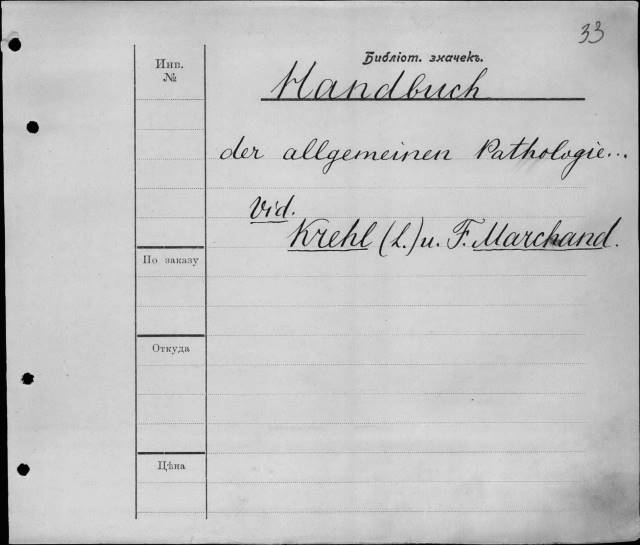 33
Библіот. значекъ.
Инв.
№
Handbuch
der allgemeinen Pathologie...
Vid.
Krehl (L.) u. F. Marchand.
По заказу
Откуда
Цѣна